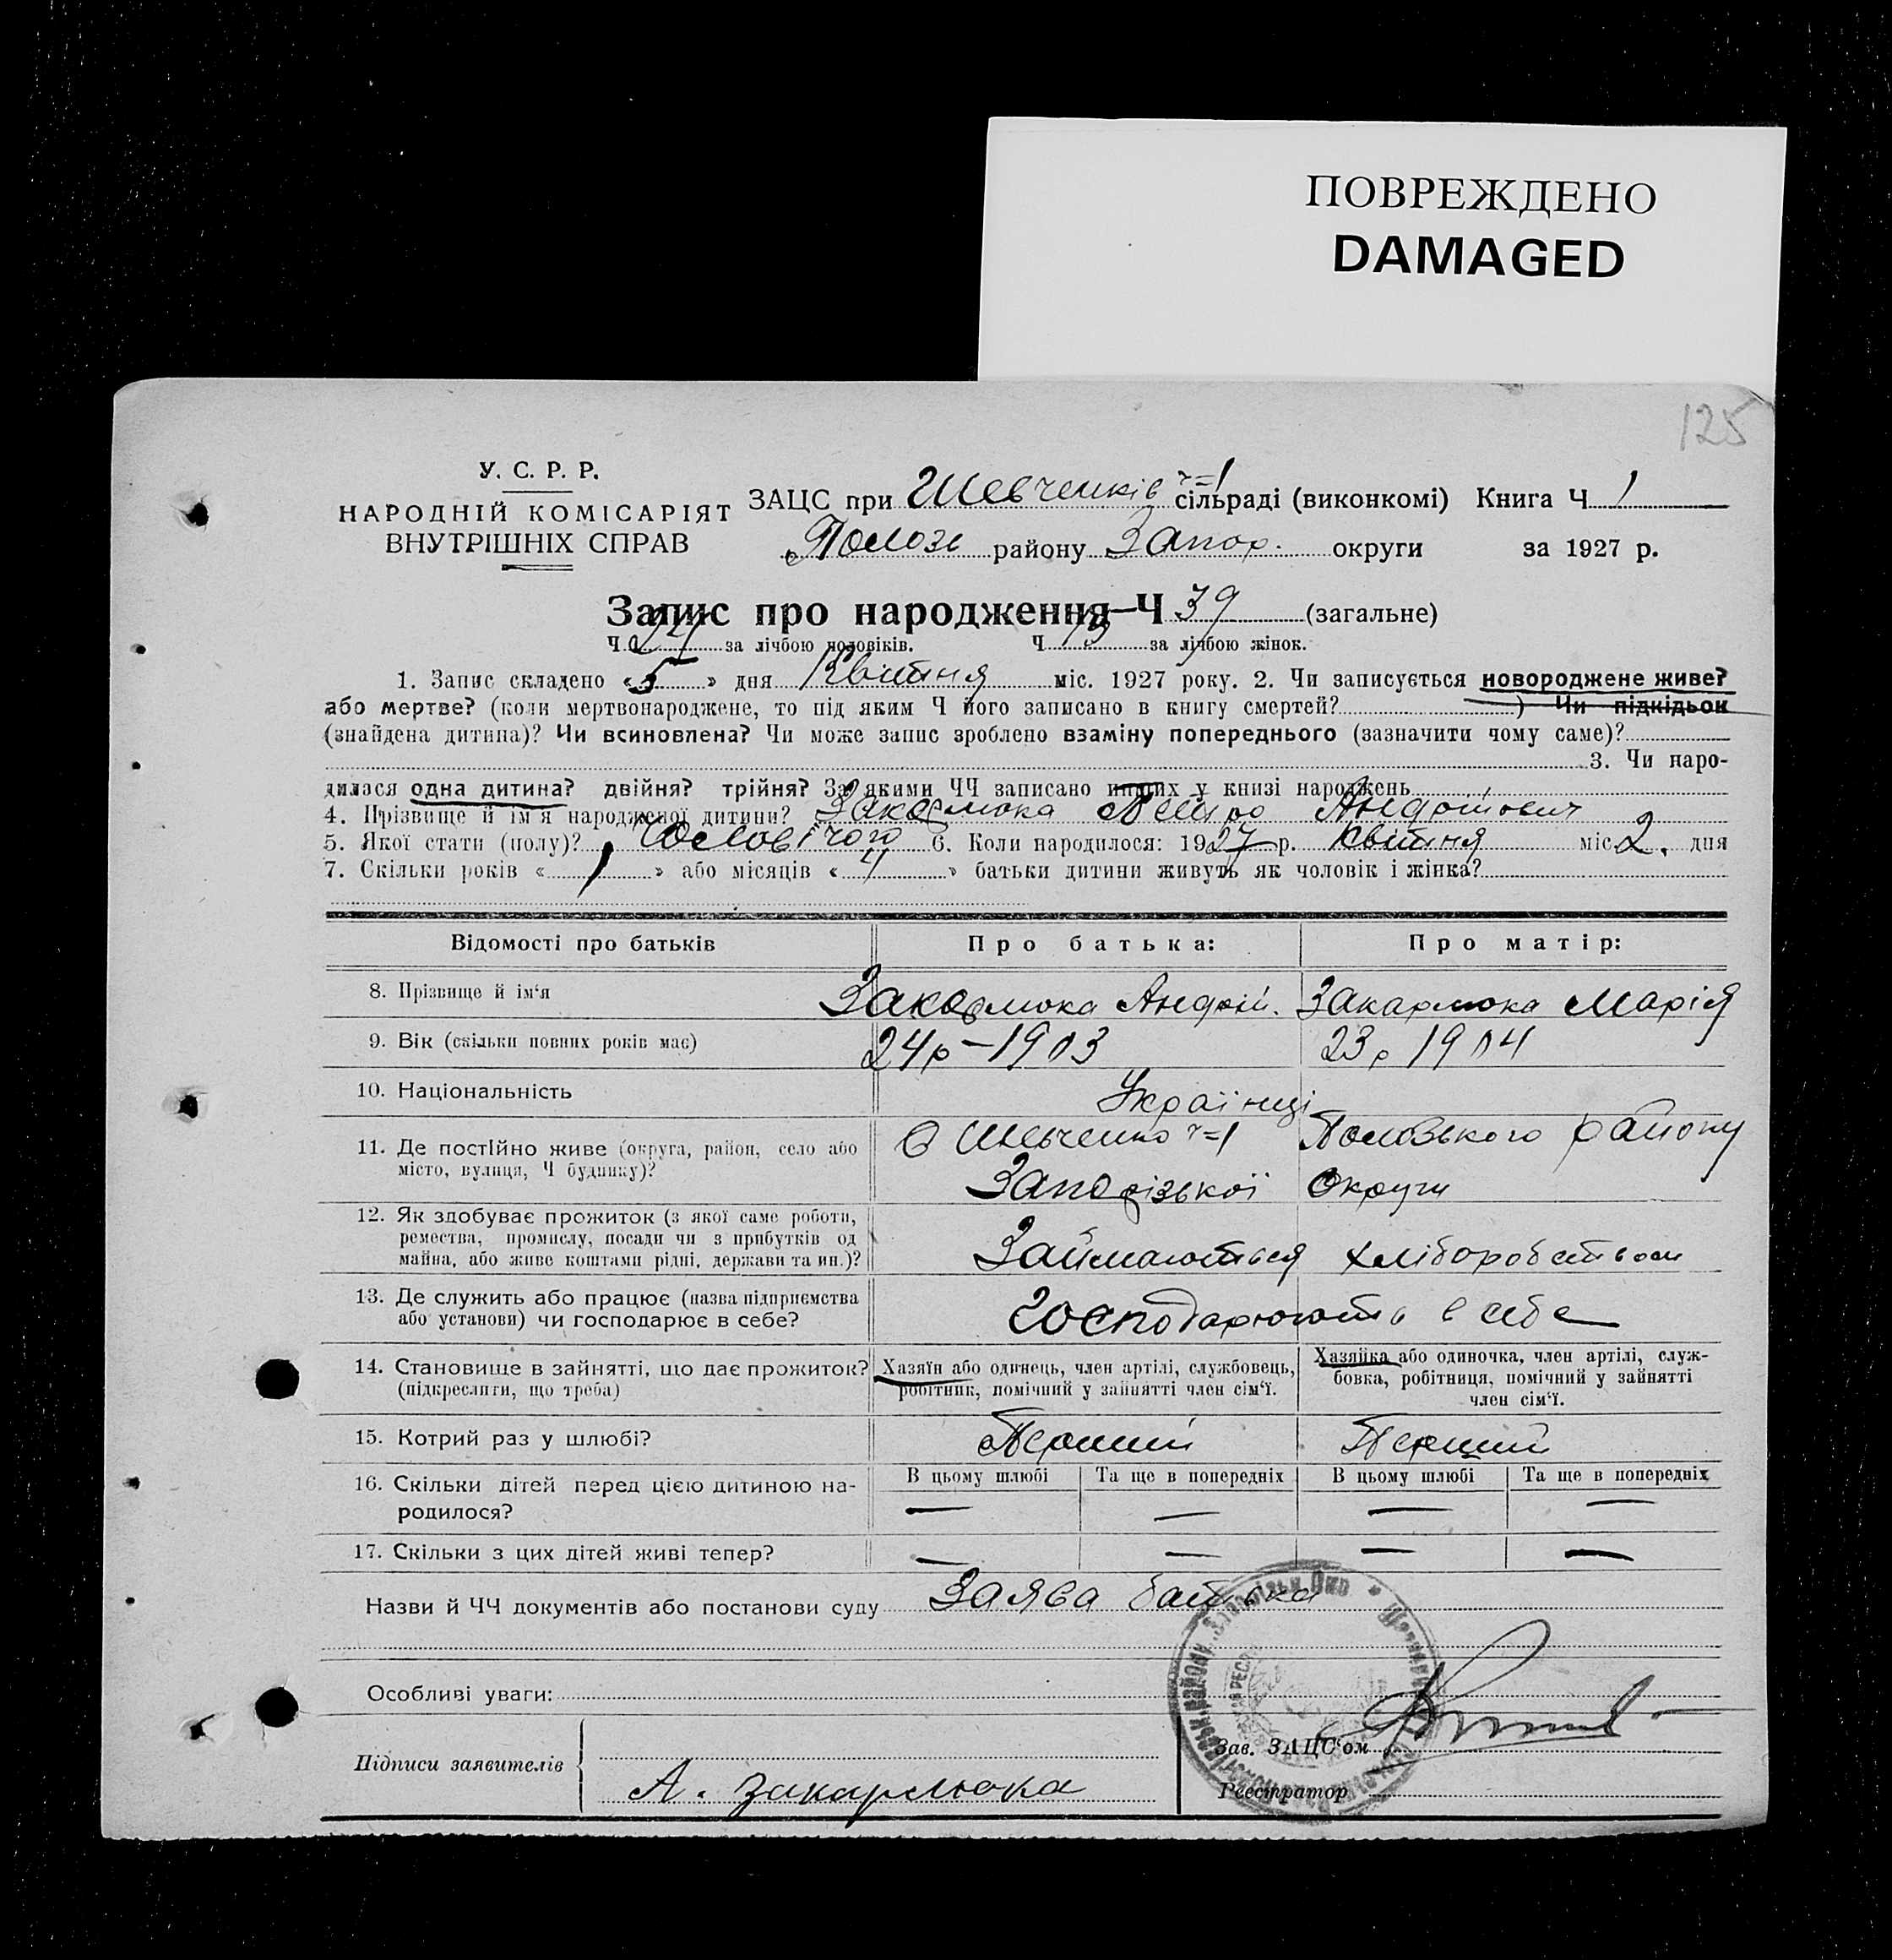 ПОВРЕЖДЕНО
DAMAGED
125
У. С. Р. Р.
НАРОДНІЙ КОМІСАРІЯТ
ВНУТРІШНІХ СПРАВ
ЗАЦС при Шевченків ч=1 сільраді (виконкомі) Книга Ч 1
Полозь району Запор. округи за 1927 р.
Запис про народження—Ч 39 (загальне)
Ч 24 за лічбою чоловіків. Ч 15 за лічбою жінок.
1. Запис складено «5» дня Квітня міс. 1927 року. 2. Чи записується новороджене живе?
або мертве? (коли мертвонароджене, то під яким Ч його записано в книгу смертей? ) Чи підкідьок
(знайдена дитина)? Чи всиновлена? Чи може запис зроблено взаміну попереднього (зазначити чому саме)?
3. Чи наро-
дилася одна дитина? двійня? трійня? За якими ЧЧ записано инших у книзі народжень
4. Прізвище й ім'я народженої дитини? Закарлюка Петро Андрійович
5. Якої стати (полу)? Чоловічого 6. Коли народилося: 1927 р. Квітня міс. 2. дня
7. Скільки років « 1 » або місяців « 4 » батьки дитини живуть як чоловік і жінка?
Відомості про батьків Про батька: Про матір:
8. Прізвище й ім'я Закарлюка Андрій. Закарлюка Марія
9. Вік (скільки повних років має) 24р–1903 23р 1904
10. Національність Українці
11. Де постійно живе (округа, район, село або місто, вулиця, Ч будинку)? С Шевченко ч=1 Пологзького району
Запорізької Округи
12. Як здобуває прожиток (з якої саме роботи,
ремества, промислу, посади чи з прибутків од
майна, або живе коштами рідні, держави та ин.)? Займаються хліборобством
13. Де служить або працює (назва підприємства
або установи) чи господарює в себе? Господарюють в себе
14. Становище в зайнятті, що дає прожиток?
(підкреслити, що треба)
Хазяїн або одинець, член артілі, службовець,
робітник, помічний у зайнятті член сім'ї.
Хазяйка або одиночка, член артілі, служ-
бовка, робітниця, помічний у зайнятті
член сім'ї.
15. Котрий раз у шлюбі? Перший Перший
16. Скільки дітей перед цією дитиною на-
родилося?
В цьому шлюбі Та ще в попередніх В цьому шлюбі Та ще в попередніх
— — — —
17. Скільки з цих дітей живі тепер? — — — —
Назви й ЧЧ документів або постанови суду Заява батька
Особливі уваги:
Підписи заявителів А. Закарлюка
Зав. ЗАЦС'ом
Реєстратор